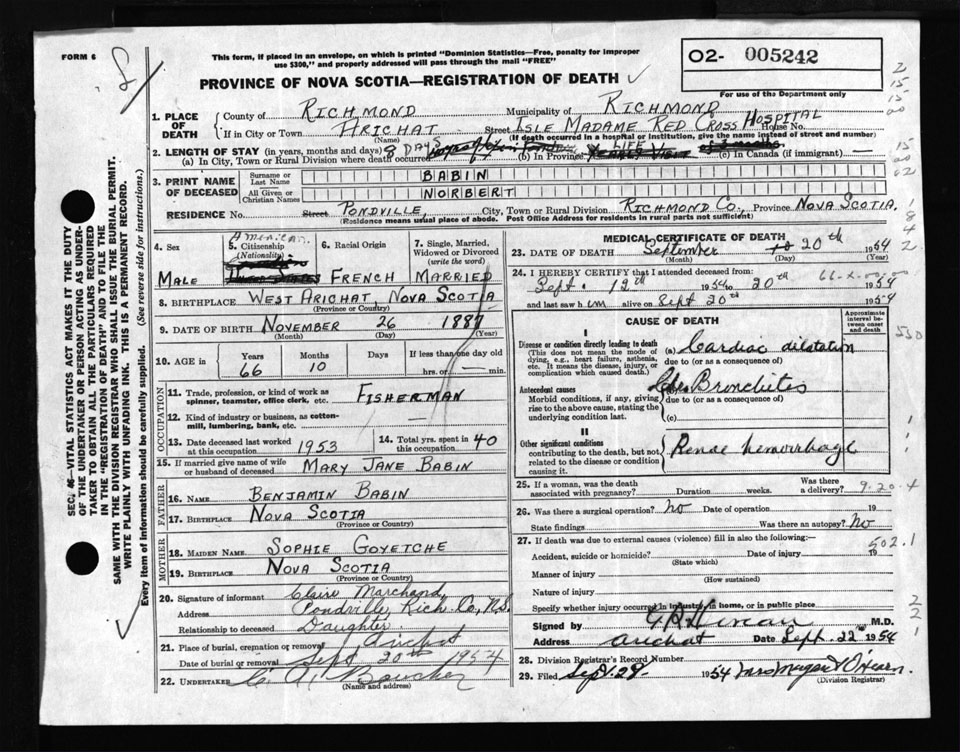 FORM 6
This form, if placed in an envelope, on which is printed "Dominion Statistics—Free, penalty for improper
use $300," and properly addressed will pass through the mail "FREE"
O2- 005242
PROVINCE OF NOVA SCOTIA—REGISTRATION OF DEATH
For use of the Department only
1. PLACE OF DEATH
County of RICHMOND Municipality of RICHMOND
If in City or Town ARICHAT Street ISLE MADAME RED CROSS HOSPITAL House No.
(Name) (If death occurred in a hospital or institution, give the name instead of street and number)
2. LENGTH OF STAY (in years, months and days) 8 DAYS LIFE
(a) In City, Town or Rural Division where death occurred (b) In Province (c) In Canada (if immigrant) —
3. PRINT NAME OF DECEASED
Surname or Last Name BABIN
All Given or Christian Names NORBERT
RESIDENCE No. Street PONDVILLE, City, Town or Rural Division RICHMOND CO., Province NOVA SCOTIA.
(Residence means usual place of abode. Post Office Address for residents in rural parts not sufficient)
4. Sex MALE
5. Citizenship (Nationality) American
6. Racial Origin FRENCH
7. Single, Married, Widowed or Divorced (write the word) MARRIED
8. BIRTHPLACE WEST ARICHAT, NOVA SCOTIA
(Province or Country)
9. DATE OF BIRTH NOVEMBER 26 1887
(Month) (Day) (Year)
10. AGE IN Years Months Days If less than one day old
66 10 hrs. or — min.
OCCUPATION
11. Trade, profession, or kind of work as spinner, teamster, office clerk, etc. FISHERMAN
12. Kind of industry or business, as cotton-mill, lumbering, bank, etc.
13. Date deceased last worked at this occupation 1953
14. Total yrs. spent in this occupation 40
15. If married give name of wife or husband of deceased MARY JANE BABIN
FATHER
16. NAME BENJAMIN BABIN
17. BIRTHPLACE NOVA SCOTIA
(Province or Country)
MOTHER
18. MAIDEN NAME SOPHIE GOYETCHE
19. BIRTHPLACE NOVA SCOTIA
(Province or Country)
20. Signature of informant Claire Marchand
Address Pondville, Rich. Co., N.S.
Relationship to deceased Daughter
21. Place of burial, cremation or removal Arichat
Date of burial or removal Sept 20th 1954
22. UNDERTAKER C. A. Boucher
(Name and address)
MEDICAL CERTIFICATE OF DEATH
23. DATE OF DEATH September 20th 1954
(Month) (Day) (Year)
24. I HEREBY CERTIFY that I attended deceased from:
Sept. 12th 1954 to 20th 1954
and last saw him alive on Sept 20th 1954
CAUSE OF DEATH
Approximate interval between onset and death
I
Disease or condition directly leading to death (a) Cardiac dilatation
(This does not mean the mode of dying, e.g., heart failure, asthenia, etc. It means the disease, injury, or complication which caused death.)
due to (or as a consequence of)
Antecedent causes (b) Bronchitis
Morbid conditions, if any, giving rise to the above cause, stating the underlying condition last.
due to (or as a consequence of)
(c)
II
Other significant conditions contributing to the death, but not related to the disease or condition causing it. hemorrhage
25. If a woman, was the death associated with pregnancy? Duration weeks. Was there a delivery? 9-20-4
26. Was there a surgical operation? No Date of operation 19
State findings Was there an autopsy? No
27. If death was due to external causes (violence) fill in also the following: 502.1
Accident, suicide or homicide? Date of injury 19
(State which)
Manner of injury
(How sustained)
Nature of injury
Specify whether injury occurred in industry, in home, or in public place
Signed by M.D.
Address Arichat Date Sept. 22nd 1954
28. Division Registrar's Record Number
29. Filed Sept. 29 1954
(Division Registrar)
SEC. —VITAL STATISTICS ACT MAKES IT THE DUTY
OF THE UNDERTAKER OR PERSON ACTING AS UNDER-
TAKER TO OBTAIN ALL THE PARTICULARS REQUIRED
IN THE "REGISTRATION OF DEATH" AND TO FILE THE
SAME WITH THE DIVISION REGISTRAR WHO SHALL ISSUE THE BURIAL PERMIT.
WRITE PLAINLY WITH UNFADING INK. THIS IS A PERMANENT RECORD.
Every item of information should be carefully supplied. (See reverse side for instructions.)